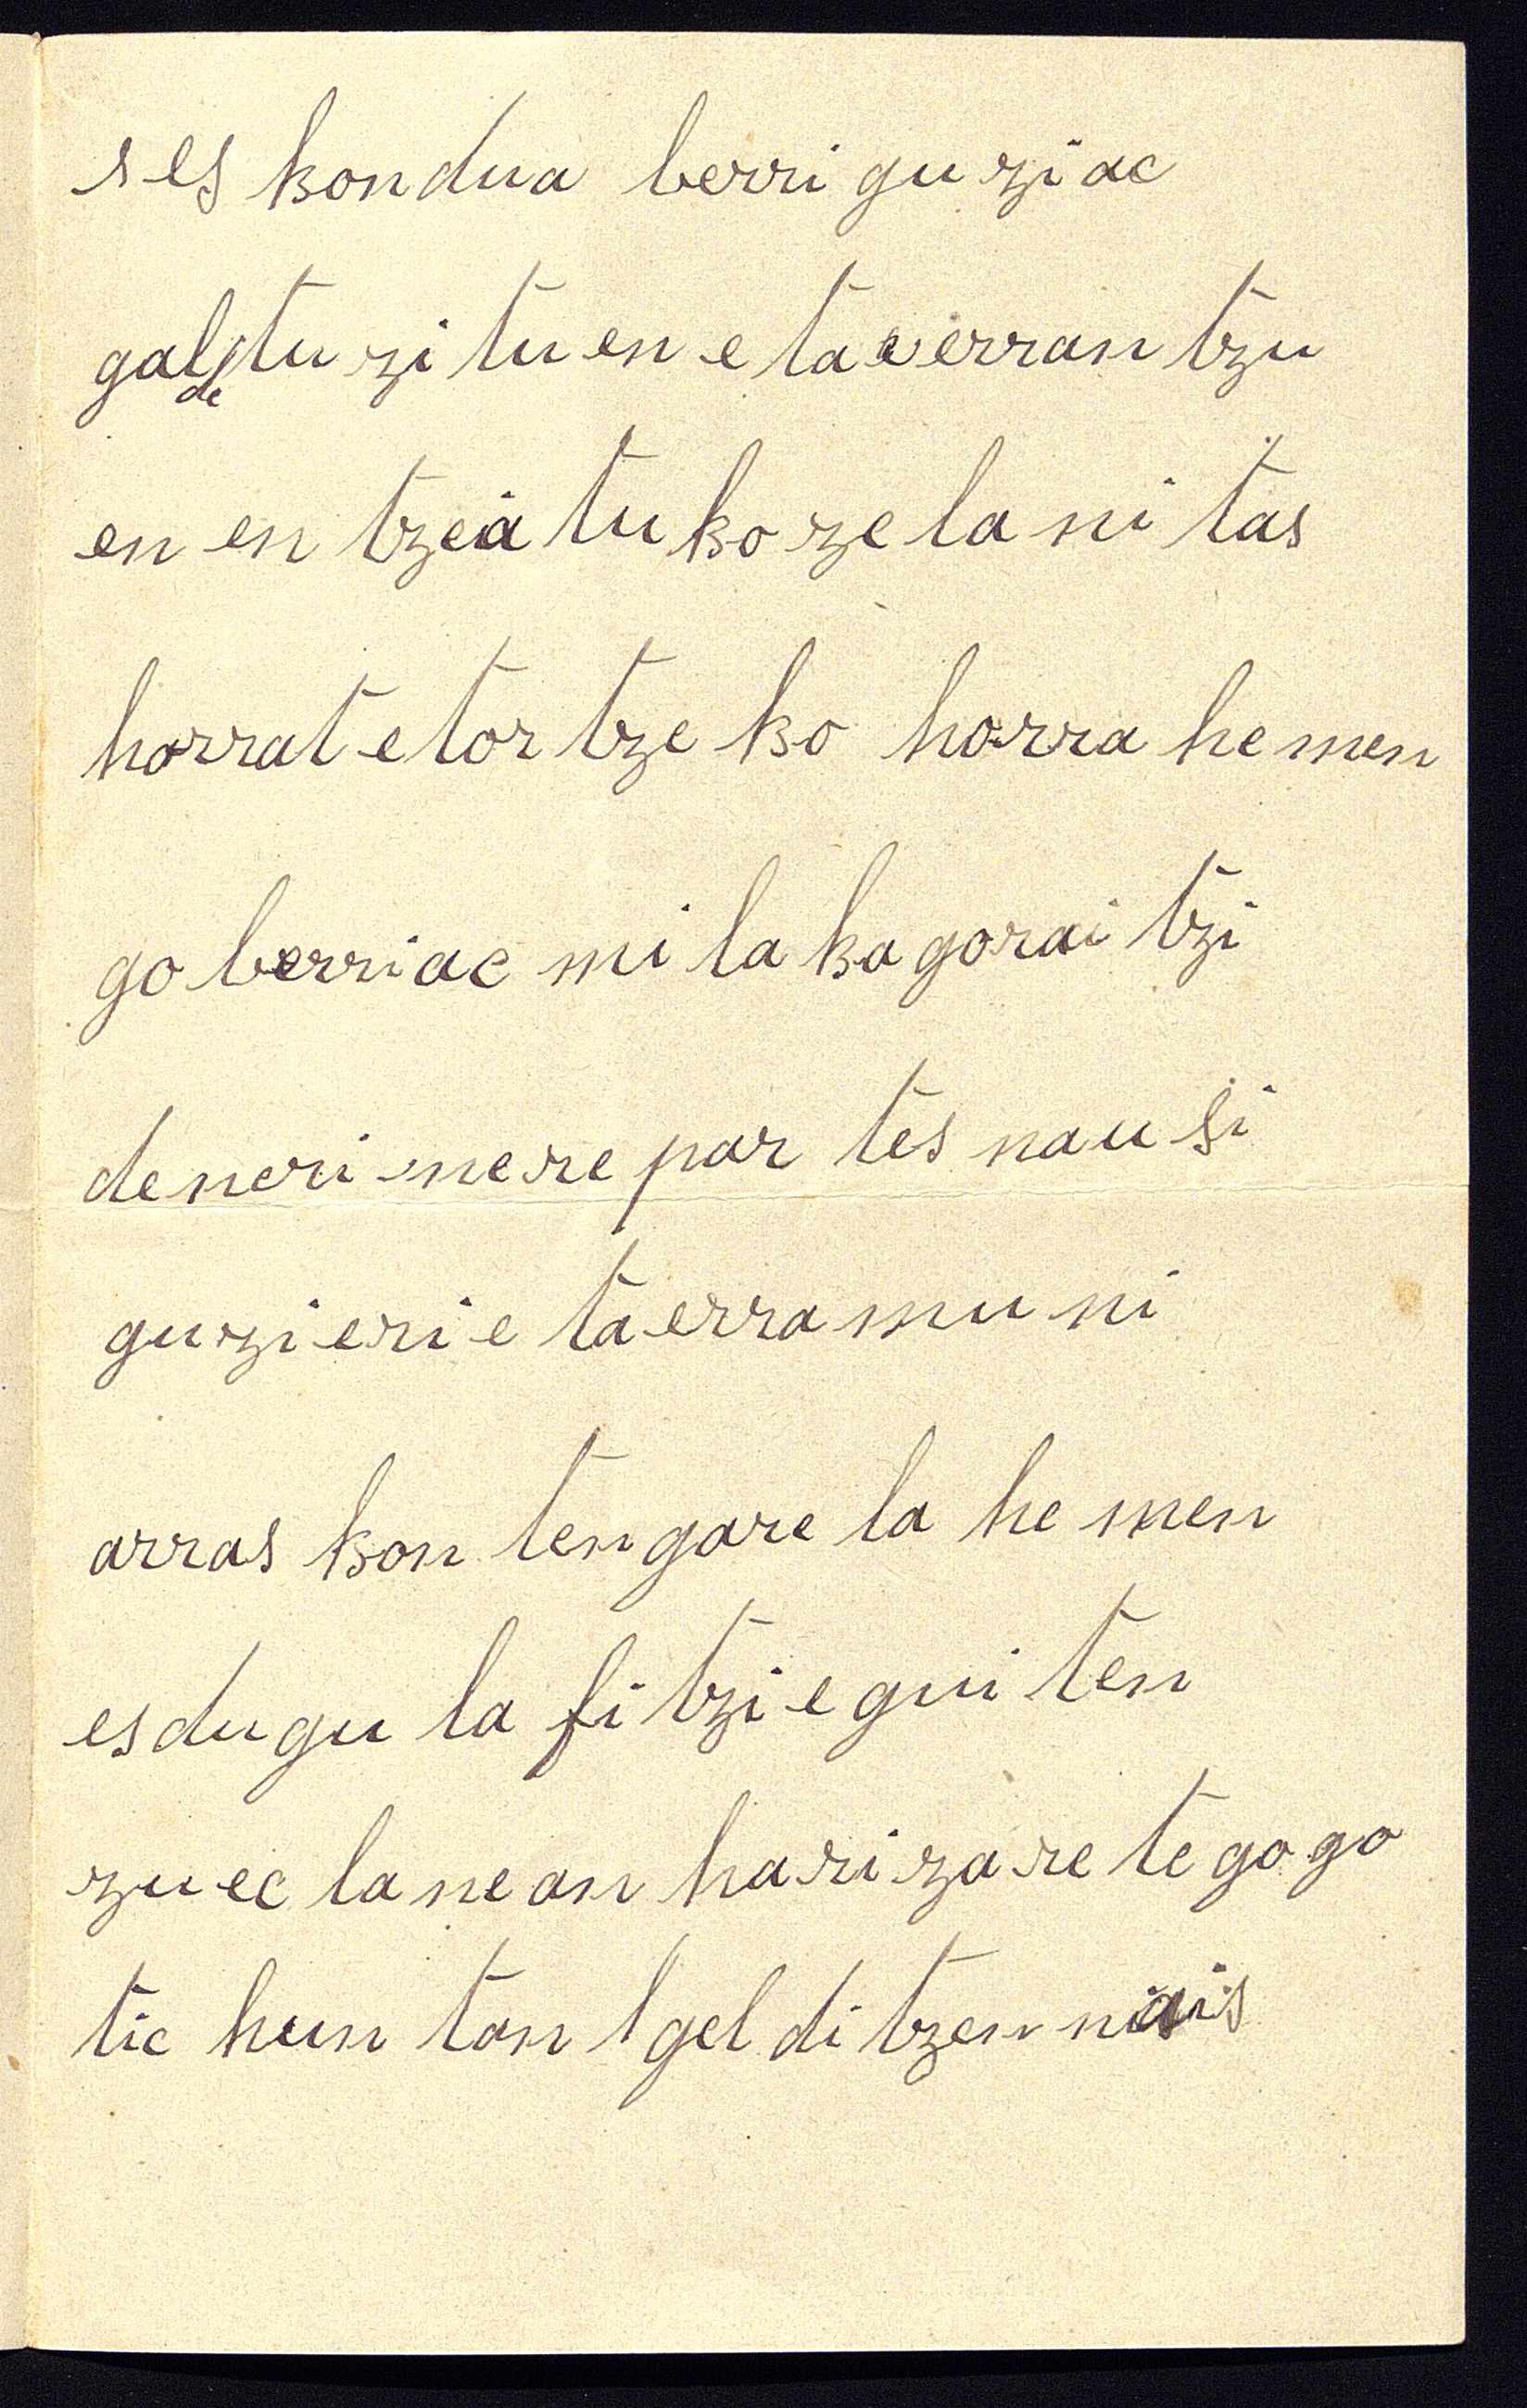 s es kon dua berri gu zi ac
galdetu zi tu en e ta e erran tzu
en en tzeia tu ko ze la ni tas
horrat e tor tze ko horra he men
go berri ac mi la ka gorai tzi
de neri ne re par tes nau si
gu zi eri e ta erra mu ni
arras kon ten gare la he men
es du gu la fi tzi e gui ten
zu ec la ne an hari za re te go go
tic hun tan gel di tzen nais